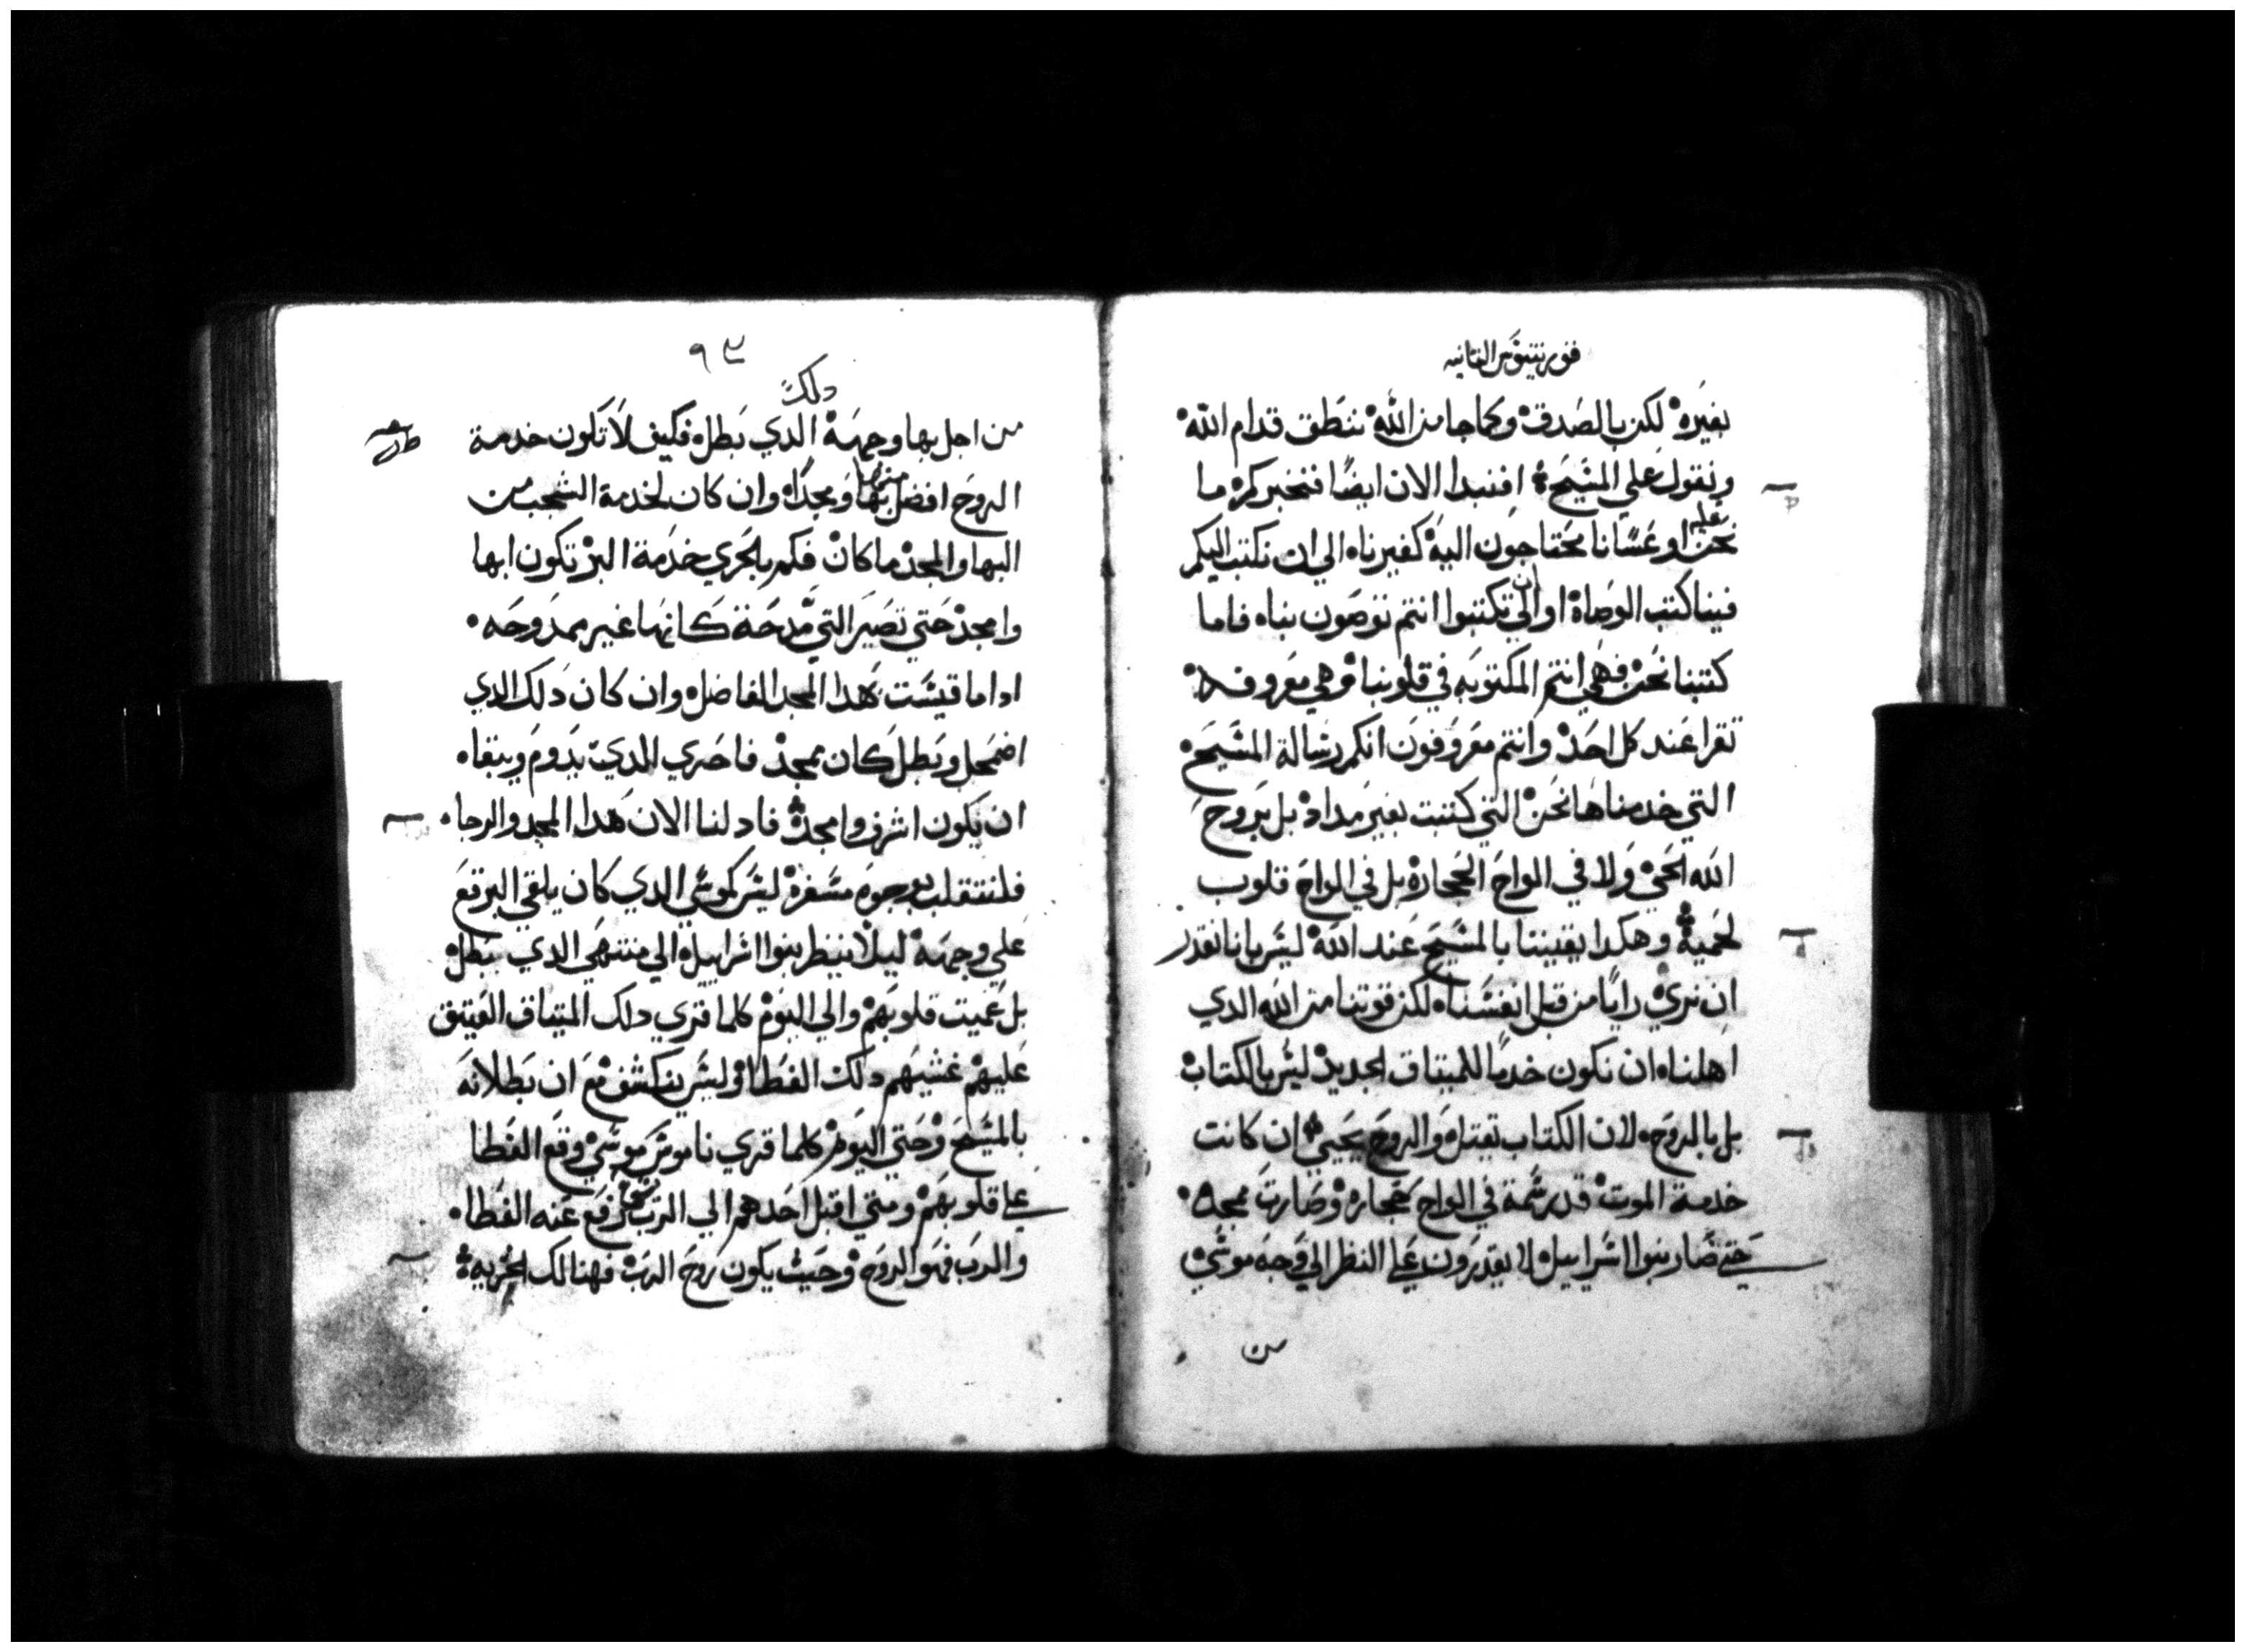 قورنتيوس التانيه
بغيره لكن بالصدق وكما جا من الله ننطق قدام الله
ونقول علي المسيح افنبدا الان ايضا فنخبركم ما
نحن عليه او عسانا محتاجون اليه كغيرناه الي ان نكتب اليكم
فينا كتب الوصاة او الي ان تكتبوا انتم توصون بناه فاما
كتبنا نحن فهي انتم المكتوبه في قلوبنا وهي معروفه
تقرا عند كل احد وانتم معروفون انكم رسالة المسيح
التي خدمناها نحن التي كتبت بغير مداد بل بروح
الله الحي ولا في الواح الحجارة بل في الواح قلوب
لحمية وهكدا يقيننا بالمسيح عند الله ليس بانا نقدر
ان نري رايا من قبل انفسناه لكن قوتنا من الله الدي
اهلناه ان نكون خدما للميتاق الجديد ليس بالكتاب
بل بالروح لان الكتاب تقتل والروح يحيي ان كانت
خدمة الموت قد رسمة في الواح حجاره وصارت بمجد
حتي صار بنوا اسراييل لا يقدرون علي النظر الي وجه موسي
من
٩٤
من اجل بها وجهه دلك الدي بطل فكيف لا تكون خدمة
الروح افضل منها بها ومجداه وان كان لخدمة الشجب من
البها والمجد ما كان فكم بالحري خدمة البر تكون ابها
وامجد حتي تصير التي مدحة كانها غير ممدوحه
ادا ما قيست بهدا المجد الفاضل وان كان دلك الدي
اضمحل وبطل كان بمجد فاحري الدي يدوم ويبقاه
ان يكون اشرف وامجد فاد لنا الان هدا المجد والرجا
فلنتقلب بوجوه مسفرة ليس كموسي الدي كان يلقي البرقع
علي وجهه ليلا ينظر بنوا اسراييل الي منتهي الدي بطل
بل عميت قلوبهم والي اليوم كلما قري دلك الميتاق العتيق
عليهم غشيهم دلك الغطا وليس ينكشف مع ان بطلانه
بالمسيح وحتي اليوم كلما قري ناموس موسي وقع الغطا
علي قلوبهم ومتي اقبل احدهم الي الرب رفع عنه الغطا
والرب فهو الروح وحيت يكون روح الرب فهنالك الحريه